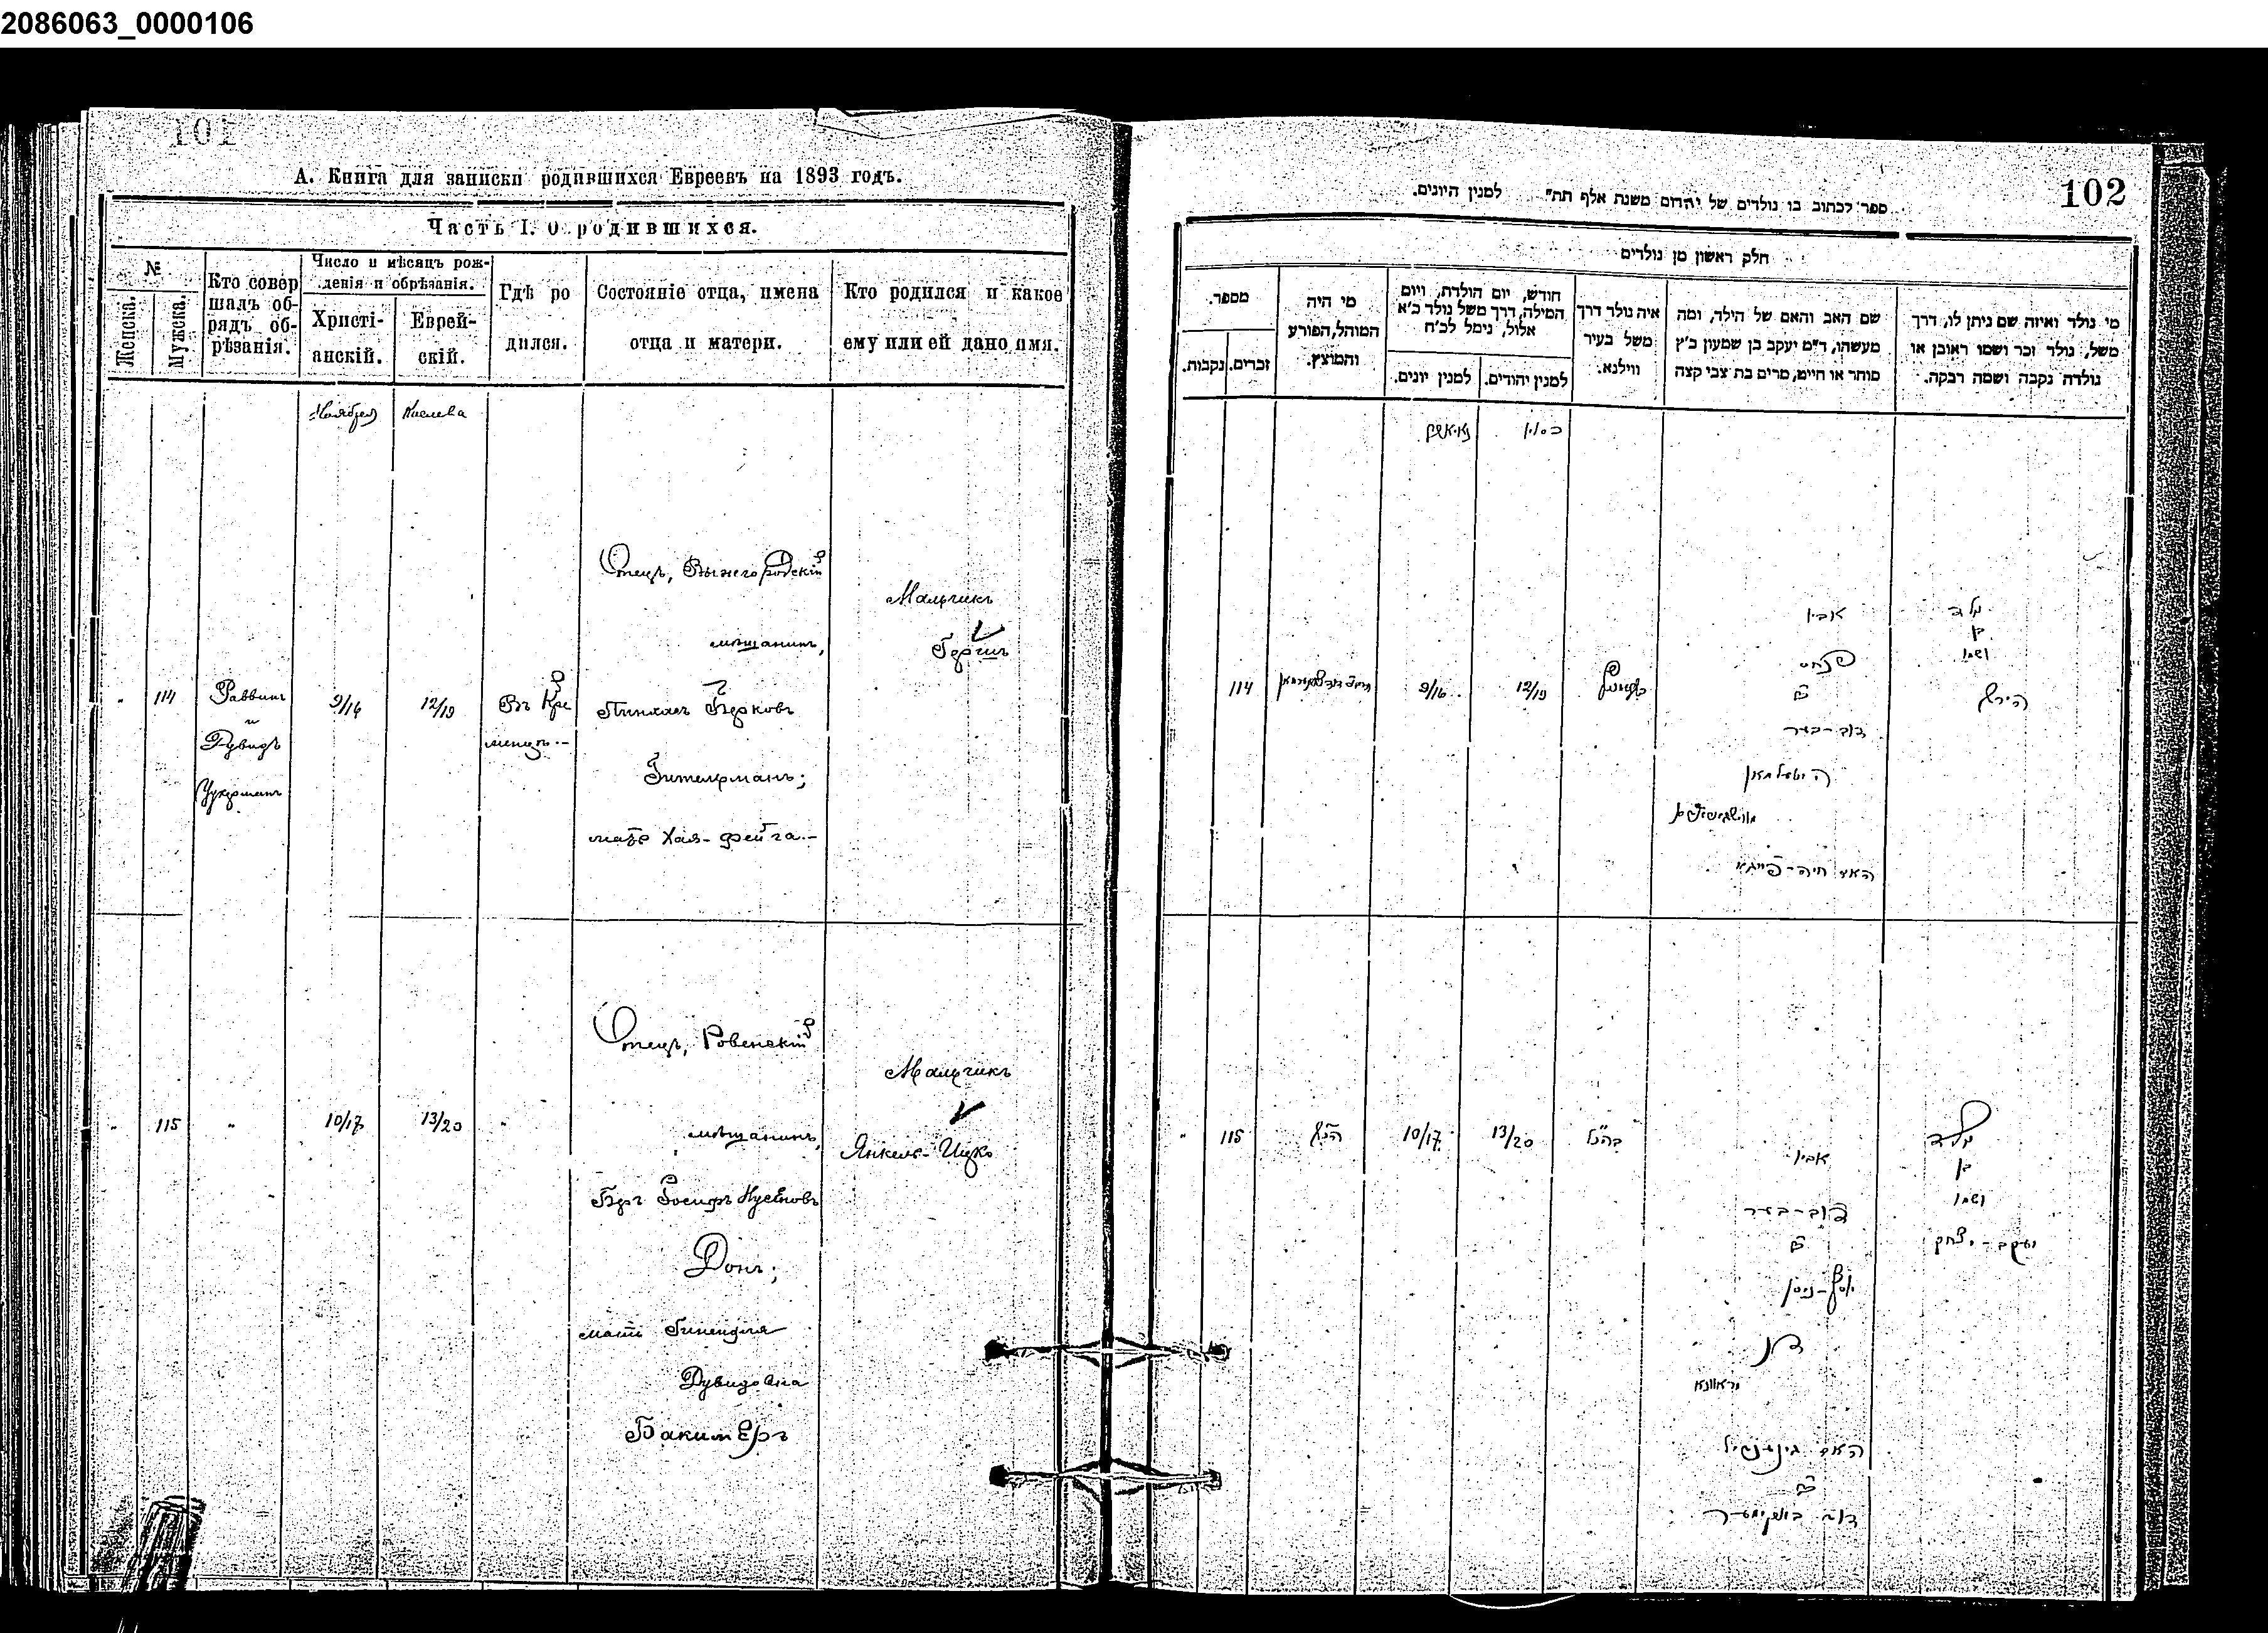 2086063_0000106
101
А. Книга для записки родившихся Евреевъ на 1893 годъ.
Часть I. О родившихся.
№
Женска.
Мужска.
Кто совер
шалъ об-
рядъ об-
рѣзанія.
Число и мѣсяцъ рож-
денія и обрѣзанія.
Христі-
анскій.
Еврей-
скій.
Гдѣ ро
дился.
Состояніе отца, имена
отца и матери.
Кто родился и какое
ему или ей дано имя.
Ноября
Кислева
114
Раввинъ
и
Дувидъ
Цукерманъ
9/16
12/19
Въ Кре
менцѣ.-
Отецъ, Вышегородскій
мѣщанинъ,
Пинхасъ Берковъ
Гительманъ;
мать Хая-Фейга.-
Мальчикъ
Гершъ
115
"
10/17
13/20
"
Отецъ, Ровенскій
мѣщанинъ,
Беръ Іосифъ Нусеновъ
Донъ;
мать Гинендля
Дувидовна
Бакимеръ
Мальчикъ
Янкель-Ицко
102
ספר לכתוב בו נולדים של יהדום משנת אלף תת״ למנין היונים.
חלק ראשון מן נולדים
מספר.
זכרים.
נקבות.
מי היה
המוהל, הפורע
והמוצץ.
חודש, יום הולדת, ויום
המילה, דרך משל נולד כ׳א
אלול, נימל לכ׳ח
למנין יהודים.
למנין יונים.
איה נולד דרך
משל בעיר
ווילנא.
שם האב והאם של הילד, ומה
מעשהו, ד״מ יעקב בן שמעון כ׳ץ
סוחר או חייט, מרים בת צבי קצה
מי נולד ואיזה שם ניתן לו, דרך
משל, נולד זכר ושמו ראובן או
נולדה נקבה ושמה רבקה.
כסליו
114
9/16
12/19
אביו
פנחס
ב״ר
דוב-בער
היטעלמאן
האם חיה-פייגא
נולד
בן
ושמו
הירש
"
115
הנ״ל
10/17
13/20
בהנ״ל
אביו
דוב-בער
ב״ר
יוסף-ניסן
דאן
ראוונא
האם גינענדיל
ב״ר
דוד באקימער
נולד
בן
ושמו
יעקב-יצחק